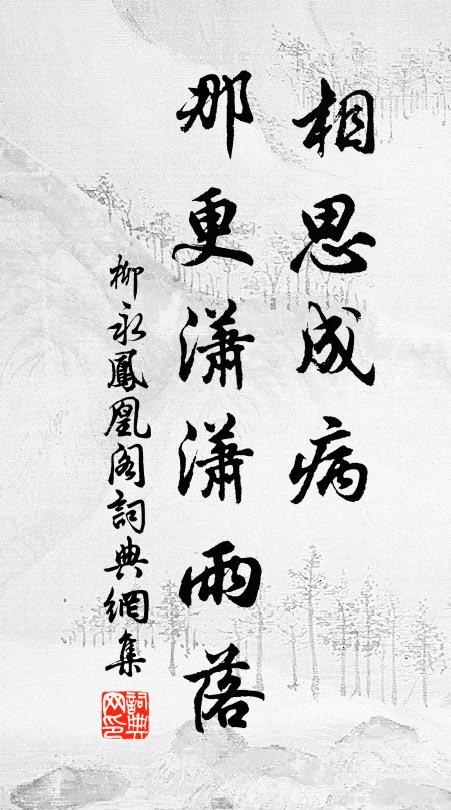 相思成病
那更瀟瀟雨落
柳永鳳凰閣詞典網集
詞典网印